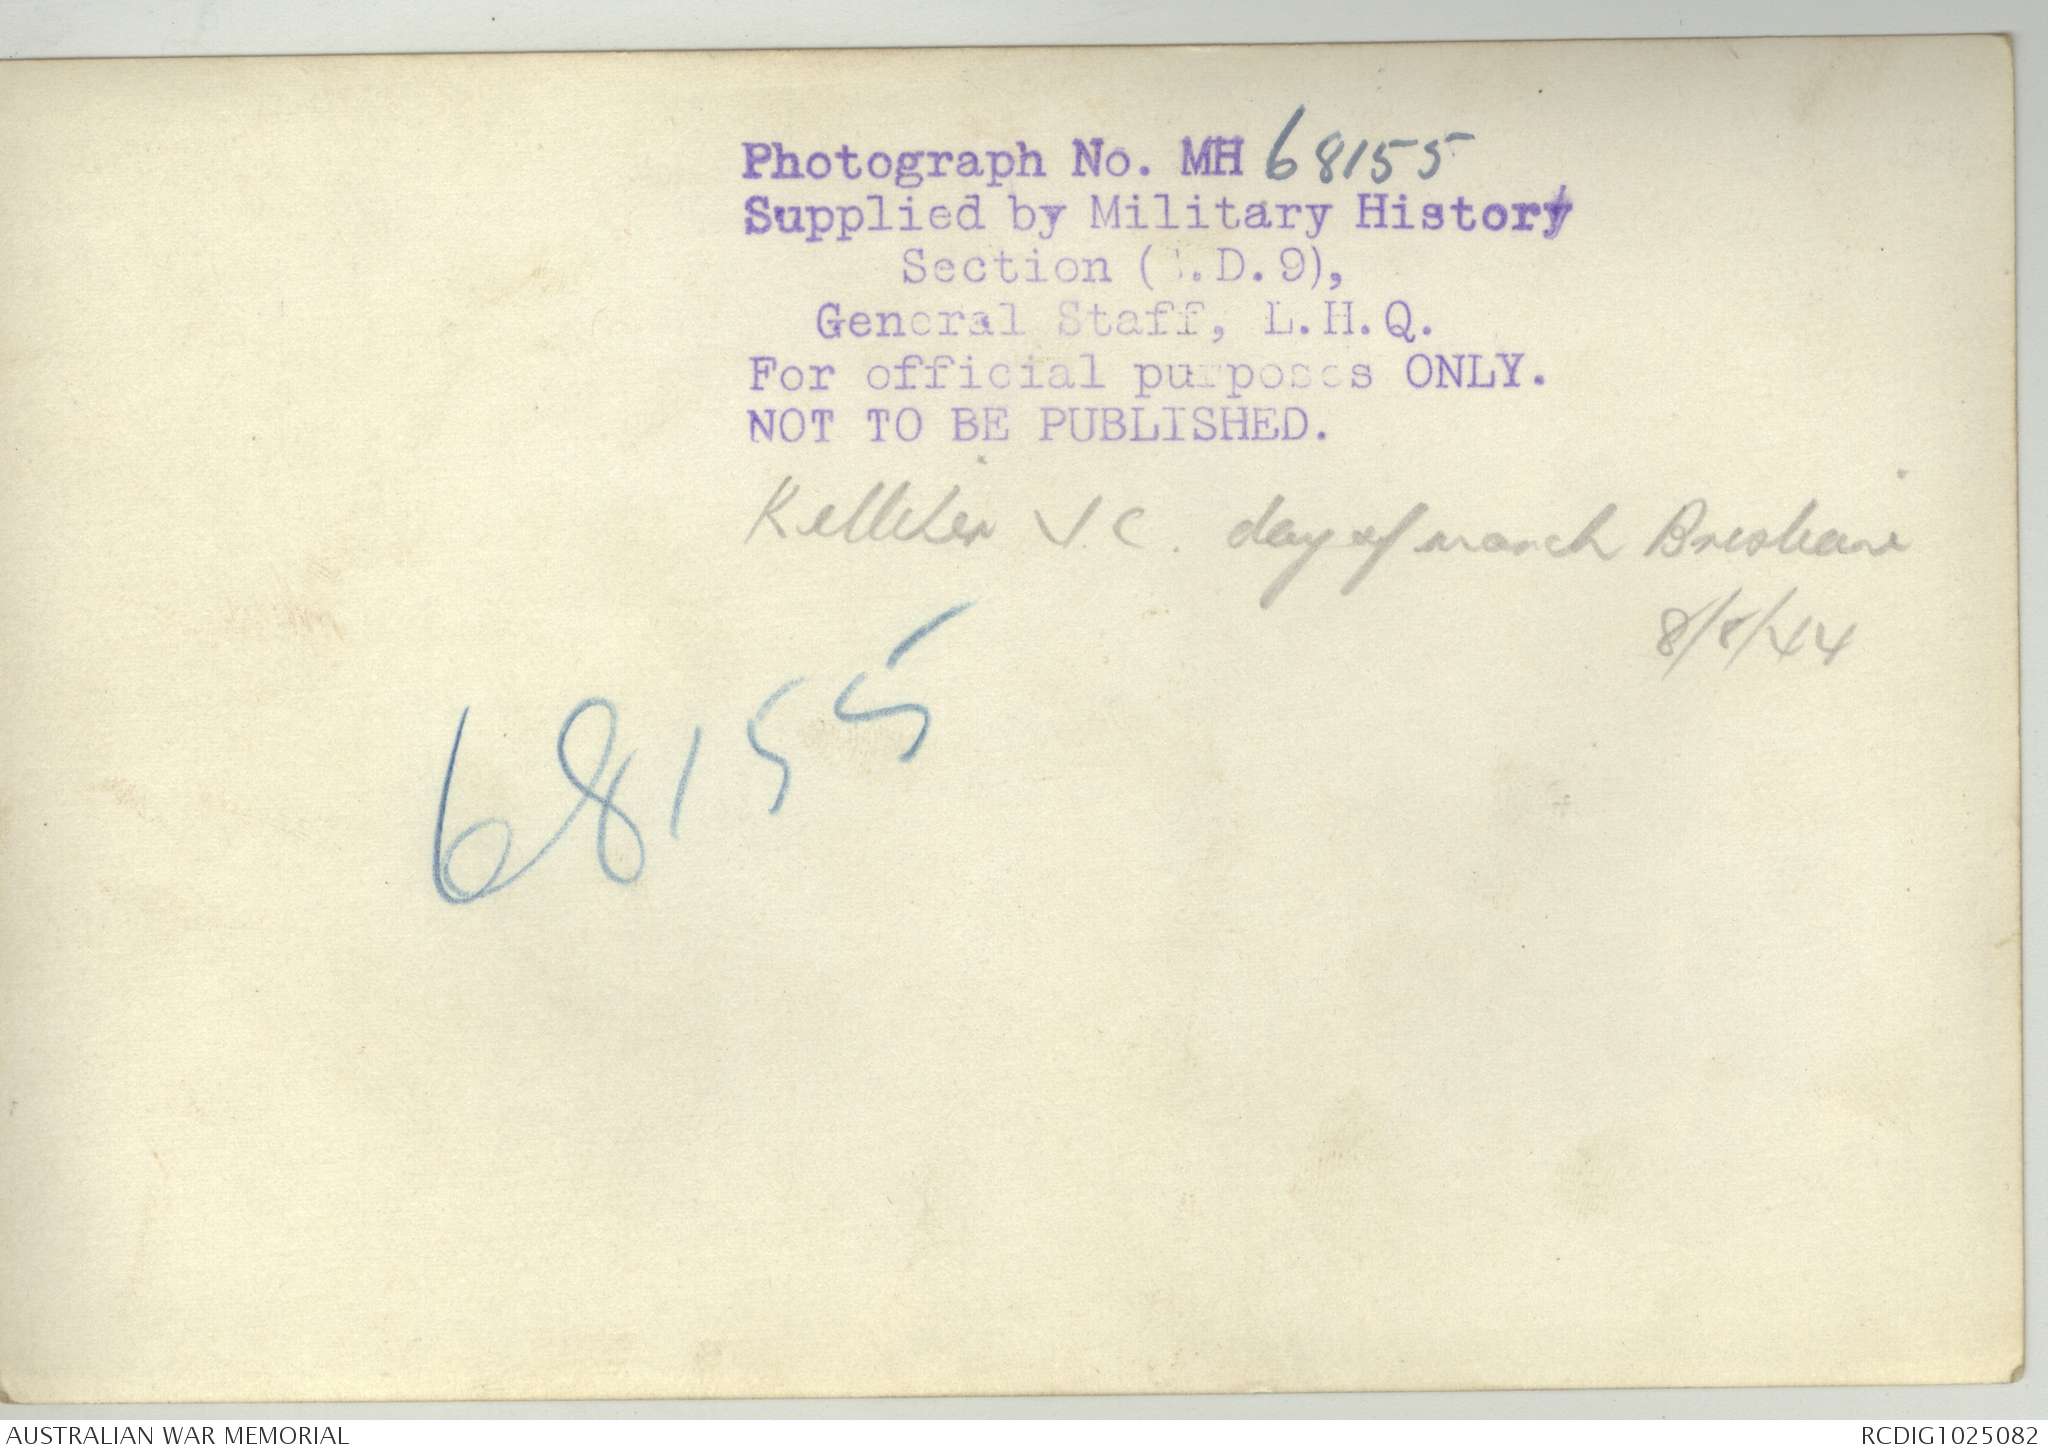 Photograph No. MH 68155
Supplied by Military History
Section (.D.9),
General Staff, L.H.Q.
For official purposes ONLY.
NOT TO BE PUBLISHED.
Kelliher V.C. day of march Brisbane
8/8/44
68155
AUSTRALIAN WAR MEMORIAL
RCDIG1025082